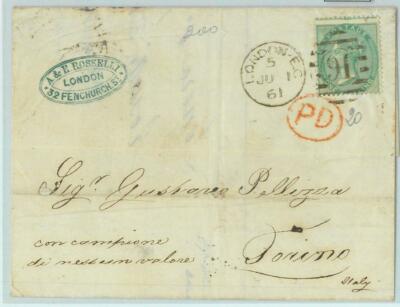 200
A & E ROSSELLI
LONDON
32 FENCHURCH ST
LONDON-E.C
5
JU 1
61
91
PD
20
Sigr Gustavo Pellizza
con campione
di nessun valore
Torino
Italy